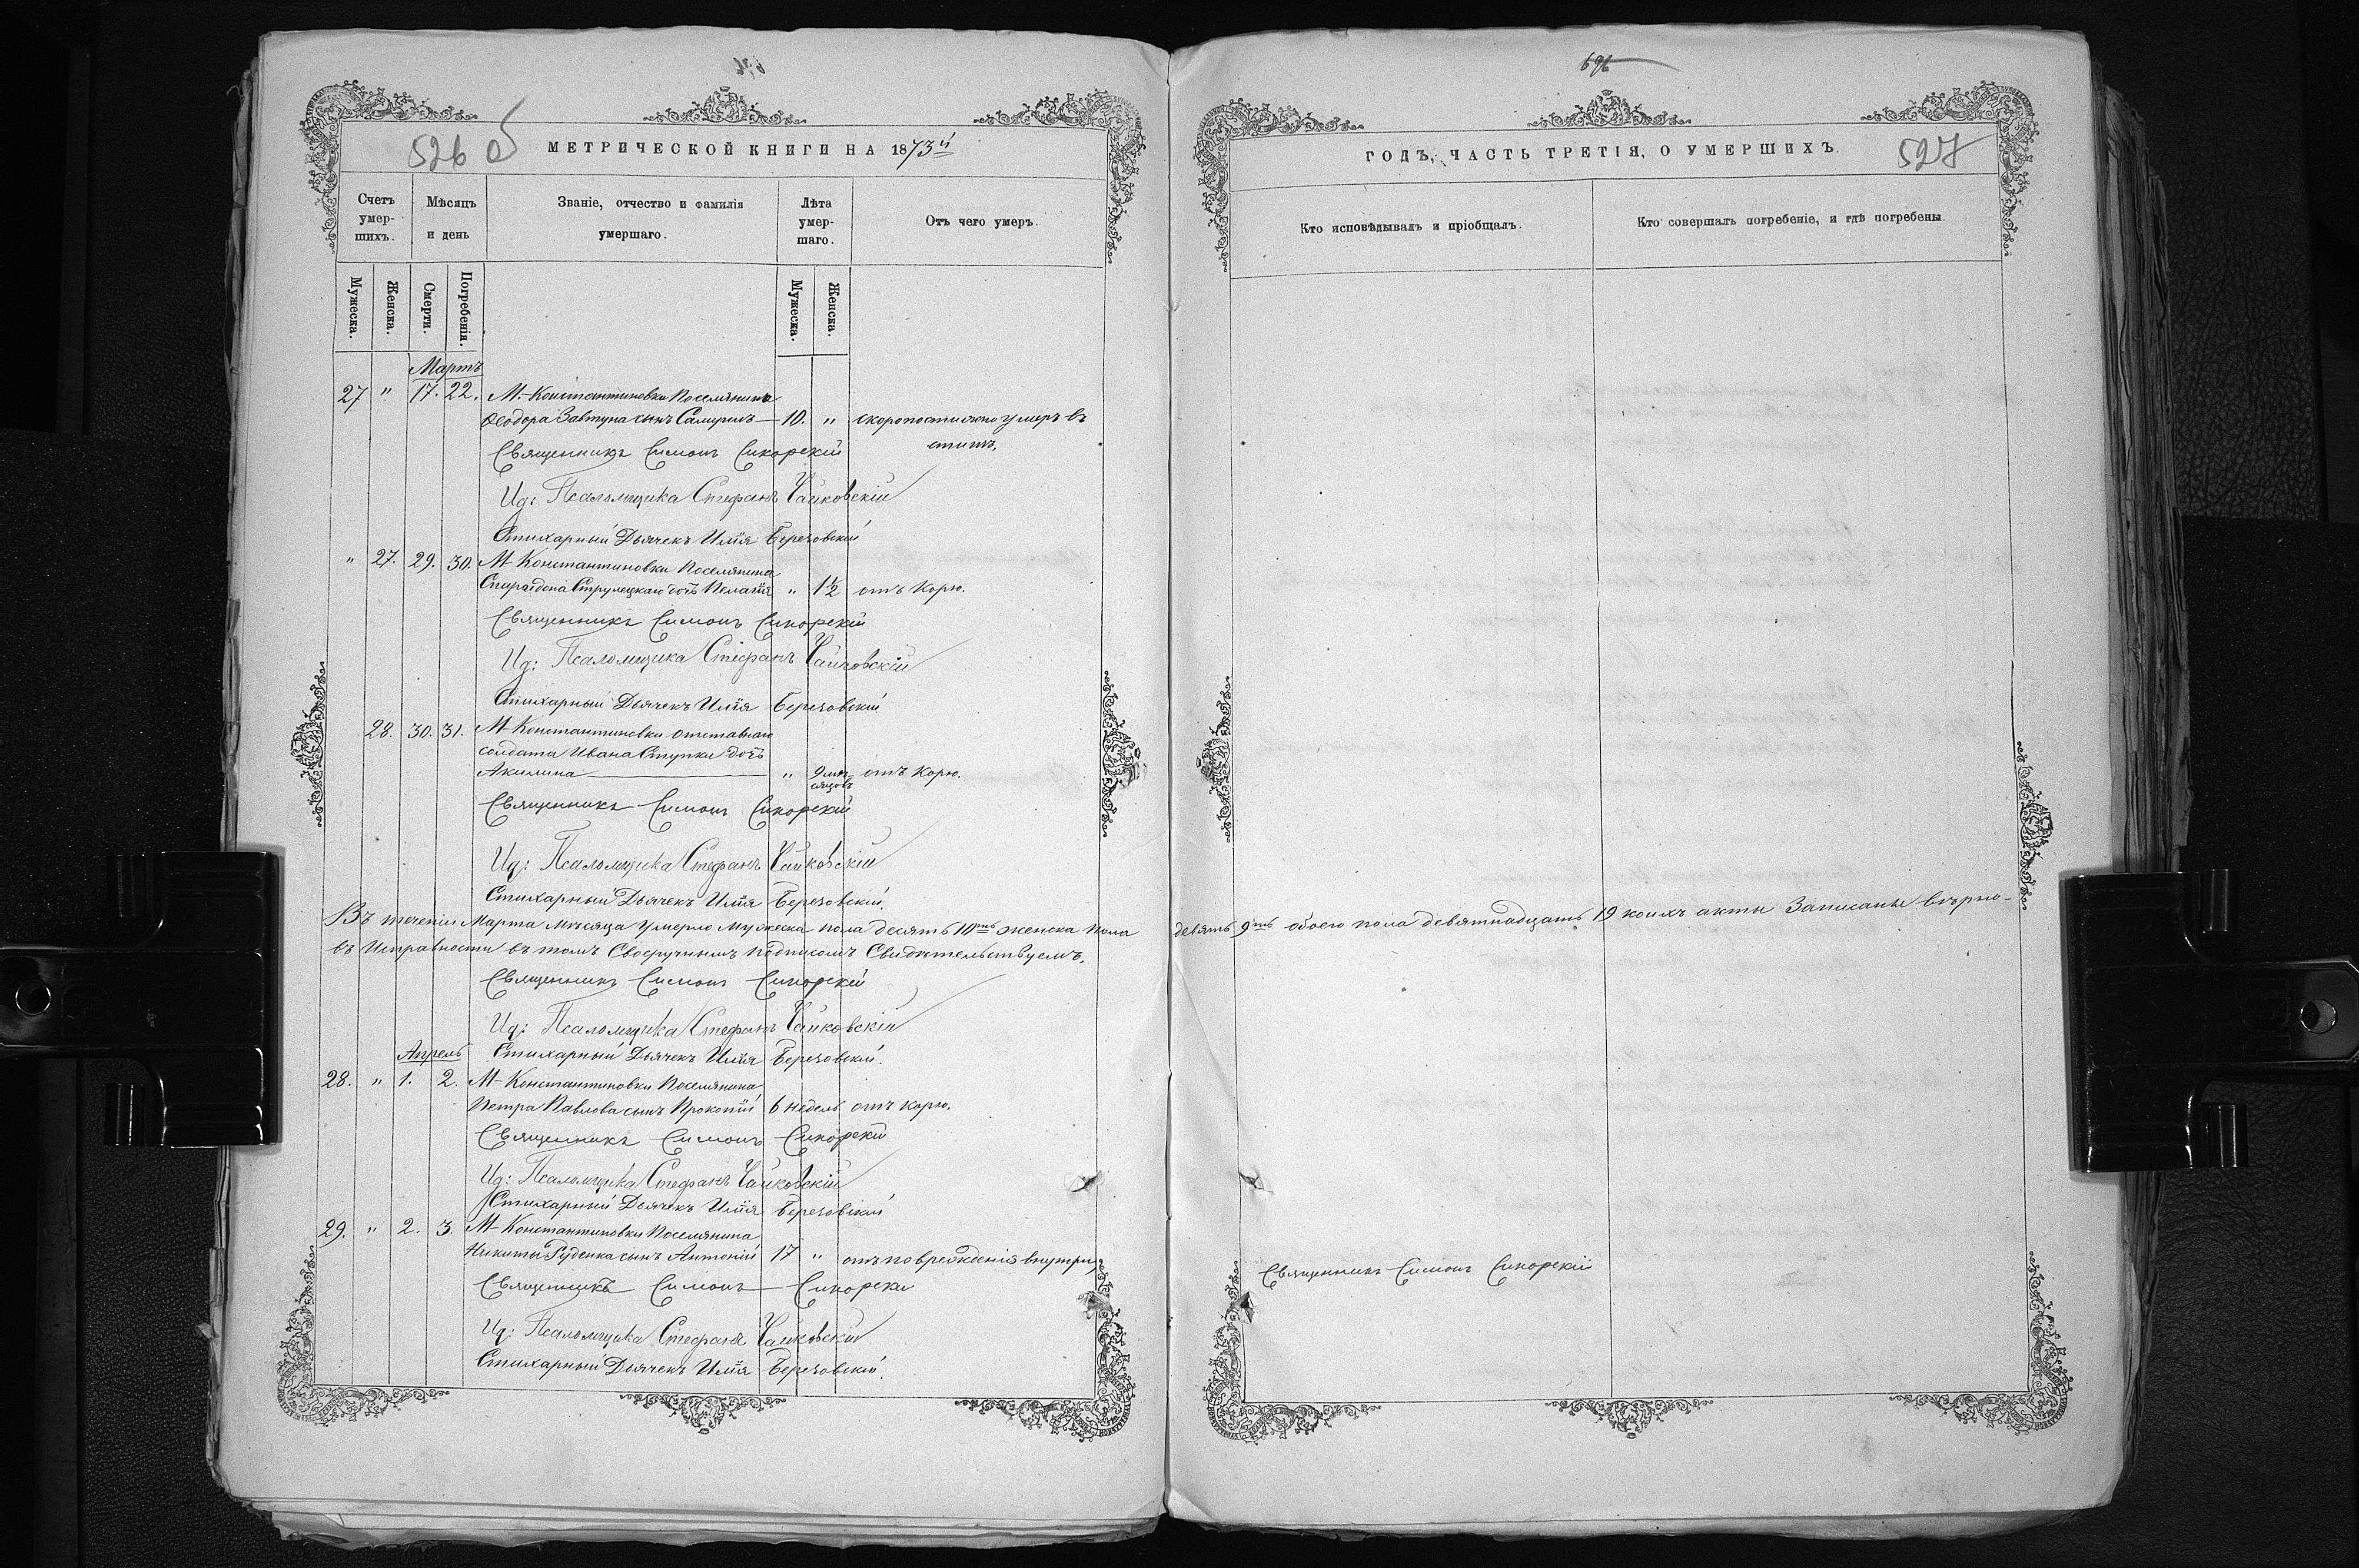 526 об
МЕТРИЧЕСКОЙ КНИГИ НА 1873й
Счетъ умер-шихъ.
Мѣсяцъ и день
Званіе, отчество и фамилія умершаго.
Лѣта умер-шаго.
Отъ чего умеръ.
Мужеска.
Женска.
Смерти.
Погребенія.
Мужеска.
Женска.
Мартъ
27 " 17. 22. М-Константиновки Поселянина
Ѳеодора Завтура сынъ Самуилъ — 10. " скоропостижно умеръ въ
степи.
Священникъ Симонъ Сикорскій
Ид: Псаломщика Стефанъ Чайковскій
Стихарный Дьячекъ Илія Березовскій
" 27. 29. 30. М-Константиновки Поселянина
Спиридона Струлецкаго дочь Пелагія " 1½ отъ Корю.
Священникъ Симонъ Сикорскій
Ид: Псаломщика Стефанъ Чайковскій
Стихарный Дьячекъ Илія Березовскій
28. 30. 31. М-Константиновки отставнаго
солдата Ивана Ступки дочь
Акилина — " 9 мѣ-сяцовъ отъ Корю.
Священникъ Симонъ Сикорскій
Ид: Псаломщика Стефанъ Чайковскій
Стихарный Дьячекъ Илія Березовскій.
Въ теченіи Марта мѣсяца умерло мужеска пола десять 10ть женска пола
въ Исправности въ томъ Своеручнымъ подписомъ Свидѣтельствуемъ.
Священникъ Симонъ Сикорскій
Ид: Псаломщика Стефанъ Чайковскій
Стихарный Дьячекъ Илія Березовскій.
Апрель
28. " 1. 2. М-Константиновки Поселянина
Петра Павлова сынъ Прокопій 6 недель отъ корю.
Священникъ Симонъ Сикорскій
Ид: Псаломщика Стефанъ Чайковскій
Стихарный Дьячекъ Илія Березовскій
29. " 2. 3. М-Константиновки Поселянина
Никиты Руденка сынъ Антоній 17 " отъ повреждения внутри
Священникъ Симонъ Сикорски
Ид: Псаломщика Стефанъ Чайковскій
Стихарный Дьячекъ Илія Березовскій.
696
ГОДЪ, ЧАСТЬ ТРЕТІЯ, О УМЕРШИХЪ.
527
Кто исповѣдывалъ и пріобщалъ.
Кто совершалъ погребеніе, и гдѣ погребены.
девять 9ть обоего пола девятнадцать 19 коихъ акты Записаны вѣрно-
Священникъ Симонъ Сикорскій